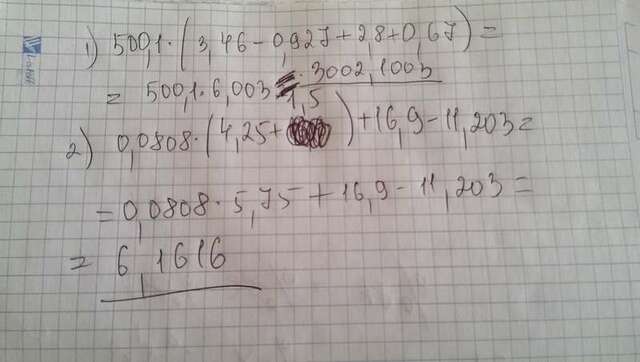 1) 500,1·(3,46-0,927+2,8+0,67)=
= 500,1·6,003 = 3002,1003
1,5
2) 0,0808·(4,25+ )+16,9-11,203=
=0,0808·5,75+16,9-11,203=
= 6,1616